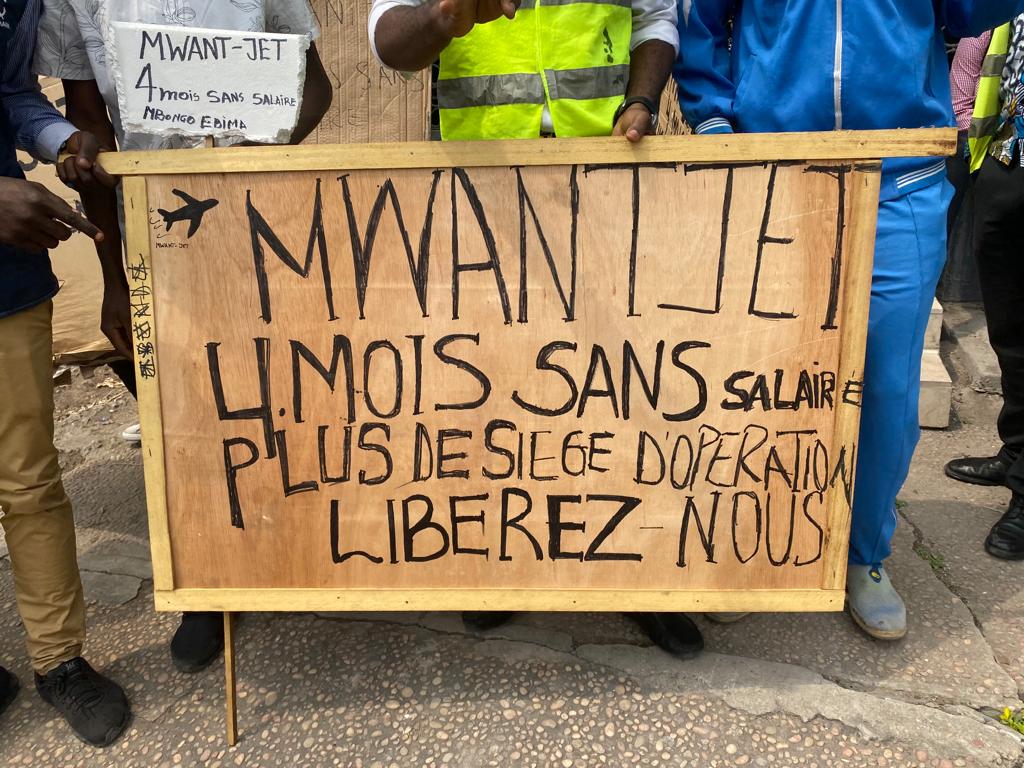 MWANT-JET
4 mois SANS SALAIRE
MBONGO EBIMA
MWANT-JET
MWANT JET
4.MOIS SANS SALAIRE
PLUS DE SIEGE D'OPERATION
LIBEREZ-NOUS